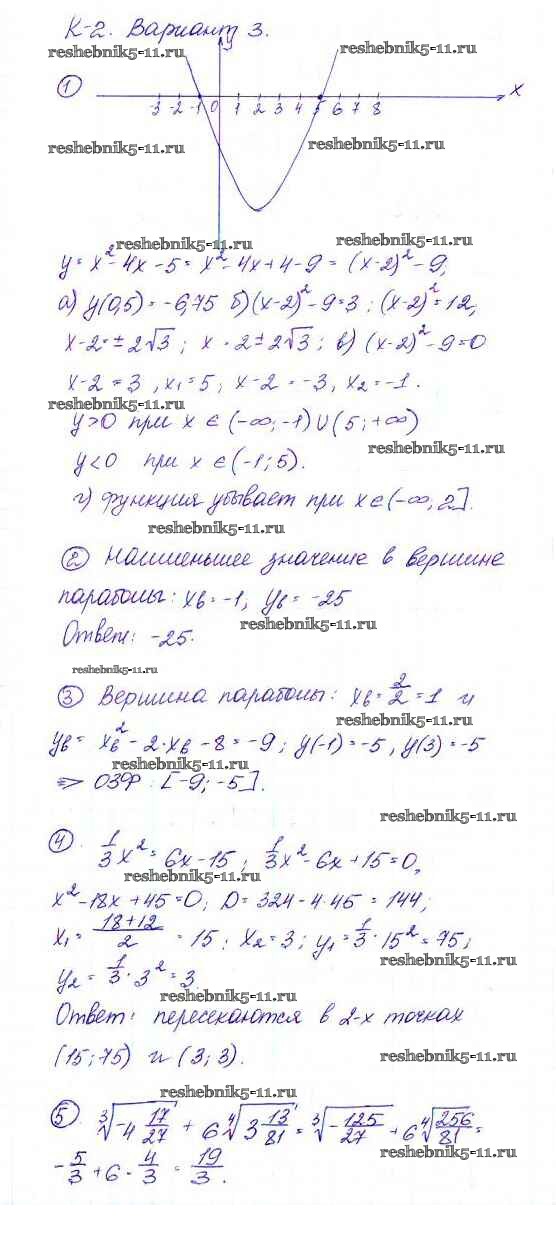 К-2. Вариант 3.
reshebnik5-11.ru reshebnik5-11.ru
① x
-3 -2 -1 0 1 2 3 4 5 6 7 8
reshebnik5-11.ru reshebnik5-11.ru
reshebnik5-11.ru reshebnik5-11.ru
y = x² - 4x - 5 = x² - 4x + 4 - 9 = (x-2)² - 9;
а) y(0,5) = -6,75 б) (x-2)² - 9 = 3; (x-2)² = 12,
reshebnik5-11.ru
x - 2 = ± 2√3; x = 2 ± 2√3; в) (x-2)² - 9 = 0
x - 2 = 3, x₁ = 5; x - 2 = -3, x₂ = -1.
reshebnik5-11.ru
y > 0 при x ∈ (-∞; -1) ∪ (5; +∞)
reshebnik5-11.ru
y < 0 при x ∈ (-1; 5).
г) функция убывает при x ∈ (-∞, 2].
reshebnik5-11.ru
② Наименьшее значение в вершине
параболы: xв = -1, yв = -25
reshebnik5-11.ru
Ответ: -25.
reshebnik5-11.ru
③ Вершина параболы: xв = 2/2 = 1 и
yв = xв² - 2·xв - 8 = -9; y(-1) = -5, y(3) = -5
reshebnik5-11.ru
=> ОЗФ: [-9; -5].
reshebnik5-11.ru
④. 1/3x² = 6x - 15; 1/3x² - 6x + 15 = 0,
x² - 18x + 45 = 0; D = 324 - 4·45 = 144;
reshebnik5-11.ru
x₁ = (18+12)/2 = 15; x₂ = 3; y₁ = 1/3 · 15² = 75;
reshebnik5-11.ru
y₂ = 1/3 · 3² = 3
reshebnik5-11.ru
Ответ: пересекаются в 2-х точках
(15; 75) и (3; 3).
reshebnik5-11.ru
reshebnik5-11.ru
⑤. ∛(-4 17/27) + 6 ∜(3 13/81) = ∛(-125/27) + 6 ∜(256/81) =
reshebnik5-11.ru
-5/3 + 6 · 4/3 = 19/3.
reshebnik5-11.ru